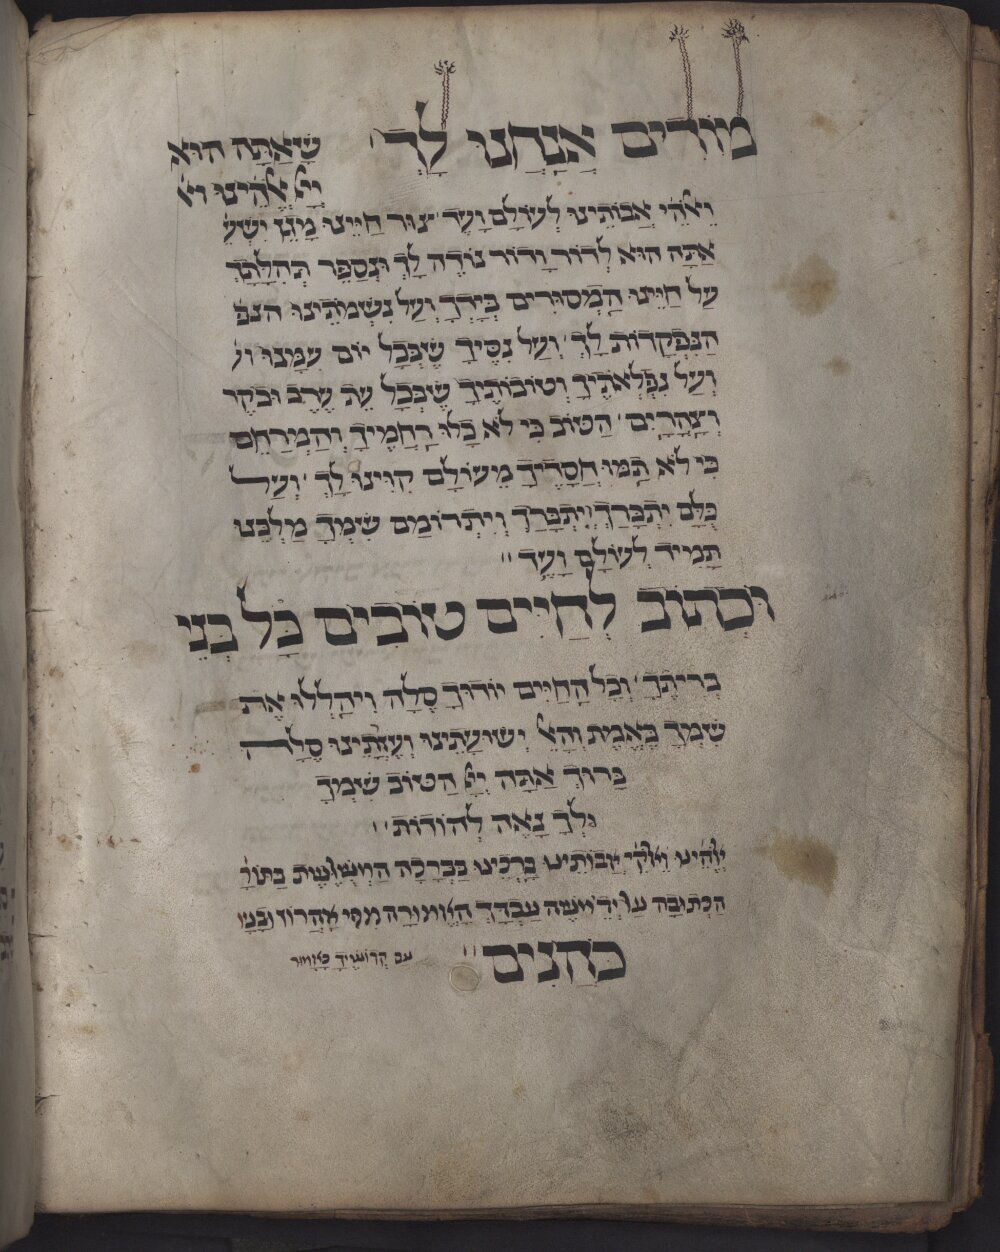 מוֹדִים אֲנַחֲנוּ לָךְ שָׁאַתָּה הוּא
יְיָ אֱלֹהֵינוּ וא
וֵאלֹהֵי אֲבוֹתֵינוּ לְעוֹלָם וָעֶד צוּר חַיֵּינוּ מָגֵן יִשְׁעֵ
אַתָּה הוּא לְדוֹר וָדוֹר נוֹדֶה לָךְ וּנְסַפֵּר תְּהִלָּתָךְ
עַל חַיֵּינוּ הַמְּסוּרִים בְּיָדָךְ וְעַל נִשְׁמֹתֵינוּ הנפ
הַנִּפְקָדוֹת לָךְ וְעַל נִסֶּיךָ שֶׁבְּכָל יוֹם עִמָּנוּ וע
וְעַל נִפְלְאֹתֶיךָ וְטוֹבוֹתֶיךָ שֶׁבְּכָל עֵת עֶרֶב וּבֹקֶר
וְצָהֳרָיִם הַטּוֹב כִּי לֹא כָלוּ רַחֲמֶיךָ וְהַמְרַחֵם
כִּי לֹא תַמּוּ חֲסָדֶיךָ מֵעוֹלָם קִוִּינוּ לָךְ וְעַל
כֻּלָּם יִתְבָּרַךְ וְיִתְבָּרַךְ וְיִתְרוֹמַם שִׁמְךָ מַלְכֵּנוּ
תָּמִיד לְעוֹלָם וָעֶד
וּכְתוֹב לְחַיִּים טוֹבִים כָּל בְּנֵי
בְרִיתֶךָ וְכָל הַחַיִּים יוֹדוּךָ סֶלָה וִיהַלְלוּ אֶת
שִׁמְךָ בֶּאֱמֶת הָאֵל יְשׁוּעָתֵינוּ וְעֶזְרָתֵינוּ סֶלָה
בָּרוּךְ אַתָּה יְיָ הַטּוֹב שִׁמְךָ
וּלְךָ נָאֶה לְהוֹדוֹת
אֱלֹהֵינוּ וֵאלֹהֵי אֲבוֹתֵינוּ בָּרְכֵינוּ בַּבְּרָכָה הַמְשֻׁלֶּשֶׁת בַּתּוֹרָ
הַכְּתוּבָה עַל יְדֵי מֹשֶׁה עַבְדָּךְ הָאֲמוּרָה מִפִּי אַהֲרֹן וּבָנָיו
כֹּהֲנִים עם קְדוֹשֶׁיךָ כָּאָמוּר